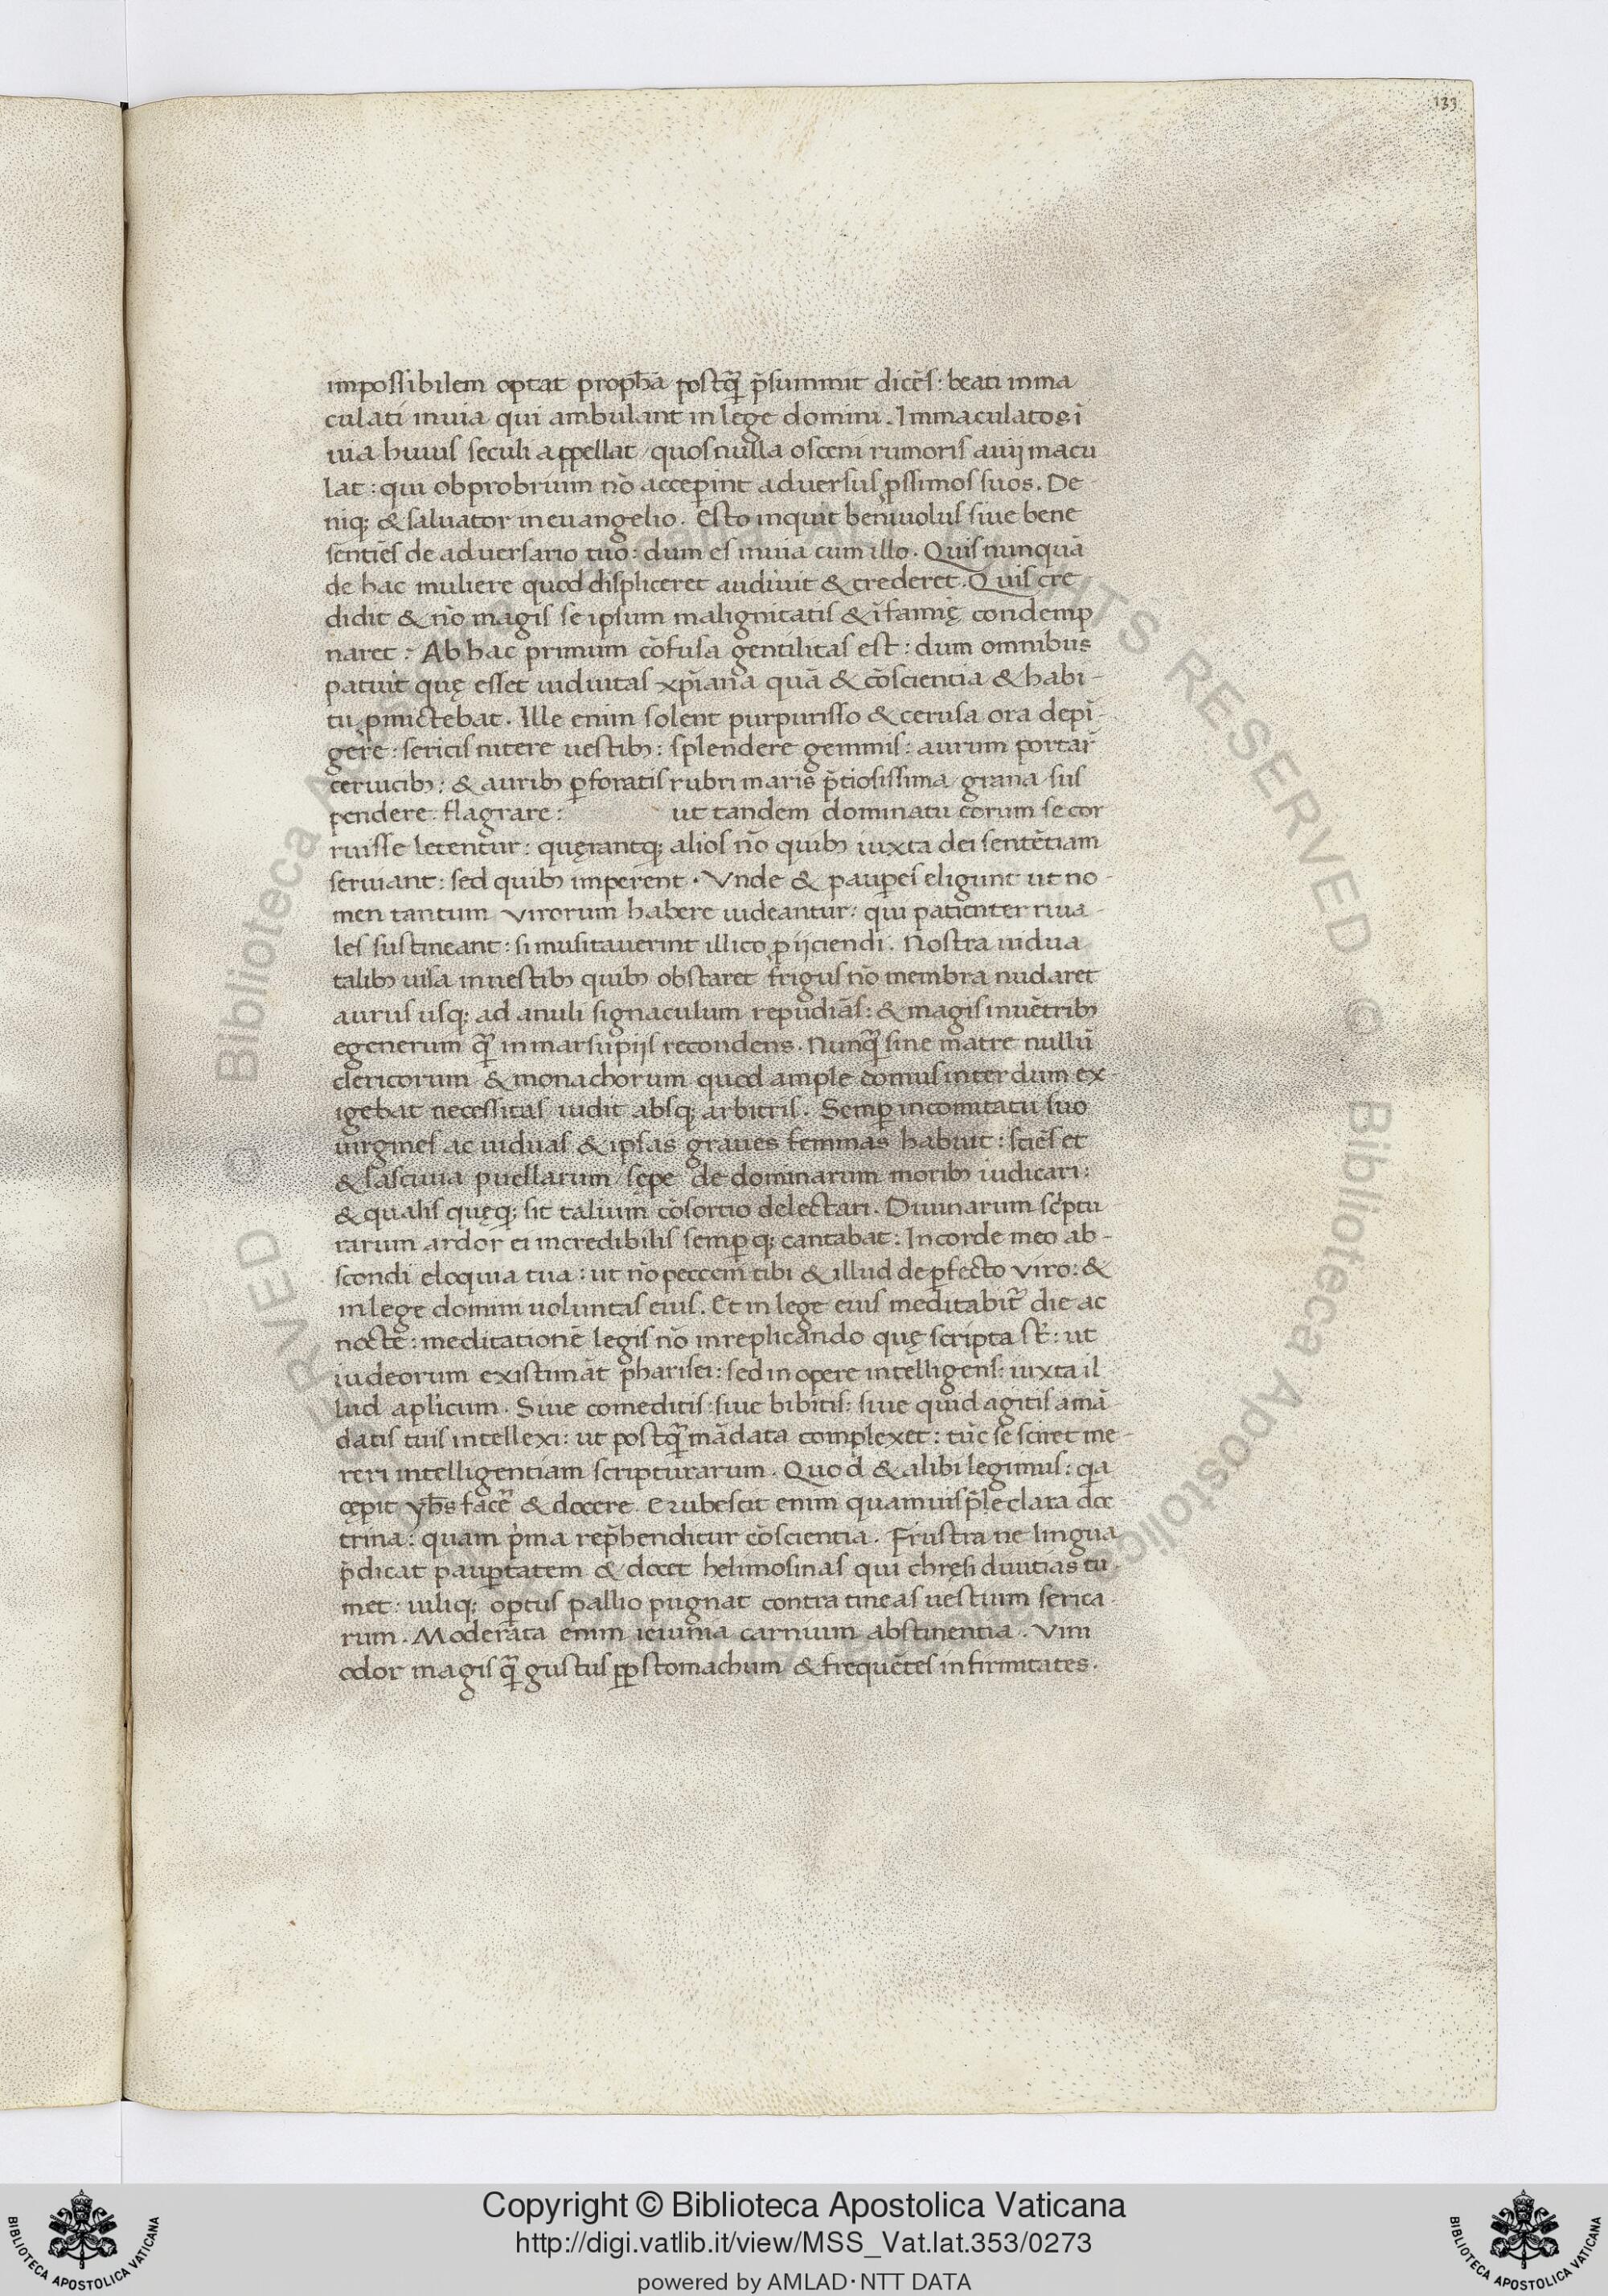 133
impossibilem optat prophã postq̃ p̃summit dicẽs: beati inma
culati inuia qui ambulant in lege domini. Immaculatos ĩ
uia huius seculi appellat / quos nulla osceni rumoris auij macu
lat: qui obprobrium nõ acceperint adversus p̱ssimos suos. De-
niq; & saluator in euangelio. Esto inquit benivolus siue bene
sentiẽs de adversario tuo: dum es inuia cum illo. Quis nunquã
de hac muliere quod displiceret audivit & crederet. Quis cre
didit & nõ magis se ipsum malignitatis & ĩfamię condemp
naret: Ab hac primum cõfusa gentilitas est: dum omnibus
patuit quę esset uiduitas xp̃iana quã & cõscientia & habi-
tu p̱mictebat. Ille enim solent purpurisso & cerusa ora depĩ-
gere: sericis nitere uestibꝫ: splendere gemmis: aurum portar̃
ceruicibꝫ: & auribꝫ p̱foratis rubri maris p̃tiosissima grana sus
pendere: flagrare: ut tandem dominatu eorum se cor
ruisse letentur: quęrantq; alios nõ quibꝫ iuxta dei sentẽtiam
seruiant: sed quibꝫ imperent. Vnde & paup̱es eligunt ut no-
men tantum virorum habere uideantur: qui patienter riua-
les sustineant: si musitauerint illico p̱ijciendi. Nostra uidua
talibꝫ uisa in uestibꝫ quibꝫ obstaret frigus nõ membra nudaret
aurus usq; ad anuli signaculum repudiãs: & magis inuẽtribꝫ
egenerum q̃ in marsupijs recondens. Nunq̃ sine matre nullũ
clericorum & monachorum quod ample domus interdum ex-
igebat necessitas uidit absq; arbitris. Semp̱ incomitatu suo
uirgines ac uiduas & ipsas graues feminas habuit: sciẽs et
& lasciuia puellarum / sępe de dominarum moribꝫ iudicari:
& qualis quęq; sit talium cõsortio delectari. Diuinarum sc̃ptu
rarum ardor ei incredibilis semp̱q; cantabat: In corde meo ab-
scondi eloquia tua: ut nõ peccem tibi & illud de p̱fecto viro: &
in lege domini uoluntas eius. Et in lege eius meditabit̃ die ac
nocte: meditationẽ legis nõ in replicando quę scripta st̃: ut
iudeorum existimãt pharisei: sed in opere intelligens: iuxta il
lud apl̃icum. Siue comeditis: siue bibitis: siue quid agitis amã
datis tuis intellexi: ut postq̃ mãdata complexet: tũc se sciret me-
reri intelligentiam scripturarum. Quod & alibi legimus: q̃a
cępit yh̃s facer̃ & docere. Erubescit enim quamuis p̃le clara doc
trina: quam p̃ma rep̃henditur cõscientia. Frustra ne lingua
p̃dicat paup̱tatem & docet helimosinas qui chręsi diuitias tu-
met: uiliq; op̱tus pallio pugnat contra tineas uestium serica-
rum. Moderata enim ieiunia carnium abstinentia. Vini
odor magis q̃ gustus pp̱ stomachum & frequẽtes infirmitates.
© Biblioteca Apostolica Vaticana ALL RIGHTS RESERVED © Biblioteca Apostolica Vaticana ALL RIGHTS RESERVED
Copyright © Biblioteca Apostolica Vaticana
http://digi.vatlib.it/view/MSS_Vat.lat.353/0273
powered by AMLAD·NTT DATA
BIBLIOTECA APOSTOLICA VATICANA
BIBLIOTECA APOSTOLICA VATICANA